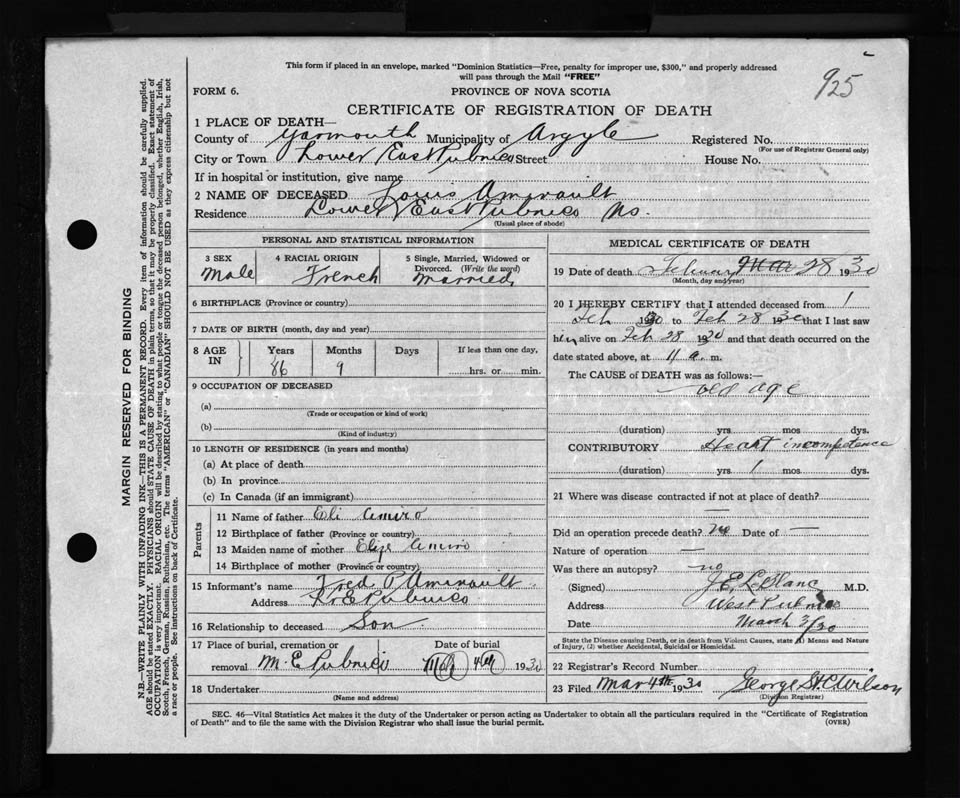 This form if placed in an envelope, marked "Dominion Statistics—Free, penalty for improper use, $300," and properly addressed
will pass through the Mail "FREE"
925
FORM 6.
PROVINCE OF NOVA SCOTIA
CERTIFICATE OF REGISTRATION OF DEATH
1 PLACE OF DEATH—
County of Yarmouth Municipality of Argyle Registered No.
(For use of Registrar General only)
City or Town Lower East Pubnico Street House No.
If in hospital or institution, give name
2 NAME OF DECEASED Louis Amirault
Residence Lower East Pubnico Ns.
(Usual place of abode)
PERSONAL AND STATISTICAL INFORMATION
3 SEX 4 RACIAL ORIGIN 5 Single, Married, Widowed or
Divorced. (Write the word)
Male French Married
6 BIRTHPLACE (Province or country)
7 DATE OF BIRTH (month, day and year)
8 AGE IN Years Months Days If less than one day,
86 9 hrs. or min.
9 OCCUPATION OF DECEASED
(a)
(Trade or occupation or kind of work)
(b)
(Kind of industry)
10 LENGTH OF RESIDENCE (in years and months)
(a) At place of death
(b) In province
(c) In Canada (if an immigrant)
Parents
11 Name of father Eli Amiro
12 Birthplace of father (Province or country)
13 Maiden name of mother Eliza Amiro
14 Birthplace of mother (Province or country)
15 Informant's name Fred P Amirault
Address Pubnico
16 Relationship to deceased Son
17 Place of burial, cremation or Date of burial
removal M. E Pubnico 4th 1930
18 Undertaker
(Name and address)
MEDICAL CERTIFICATE OF DEATH
19 Date of death February Mar 28 1930
(Month, day and year)
20 I HEREBY CERTIFY that I attended deceased from 1
Feb 1930 to Feb 28 1930 that I last saw
him alive on Feb 28 1930 and that death occurred on the
date stated above, at 11 a. m.
The CAUSE of DEATH was as follows:—
old age
(duration) yrs mos dys.
CONTRIBUTORY Heart incompetence
(duration) yrs 1 mos dys.
21 Where was disease contracted if not at place of death?
—
Did an operation precede death? no Date of —
Nature of operation —
Was there an autopsy? no
(Signed) J E LeBlanc M.D.
Address West Pubnico
Date March 3/30
State the Disease causing Death, or in death from Violent Causes, state (1) Means and Nature
of Injury, (2) whether Accidental, Suicidal or Homicidal.
22 Registrar's Record Number
23 Filed Mar 4th 1930 George St C Wilson
(Division Registrar)
SEC. 46—Vital Statistics Act makes it the duty of the Undertaker or person acting as Undertaker to obtain all the particulars required in the "Certificate of Registration
of Death" and to file the same with the Division Registrar who shall issue the burial permit.
(OVER)
MARGIN RESERVED FOR BINDING
N.B.—WRITE PLAINLY WITH UNFADING INK—THIS IS A PERMANENT RECORD. Every item of information should be carefully supplied.
AGE should be stated EXACTLY. PHYSICIANS should STATE CAUSE OF DEATH in plain terms, so that it may be properly classified. Exact statement of
OCCUPATION is very important. RACIAL ORIGIN will be described by stating to what people or tongue the deceased person belonged, whether English, Irish,
Scotch, French, German, Russian, Ruthenian, etc. The terms "AMERICAN" or "CANADIAN" SHOULD NOT BE USED as they express citizenship but not
a race or people. See instructions on back of Certificate.